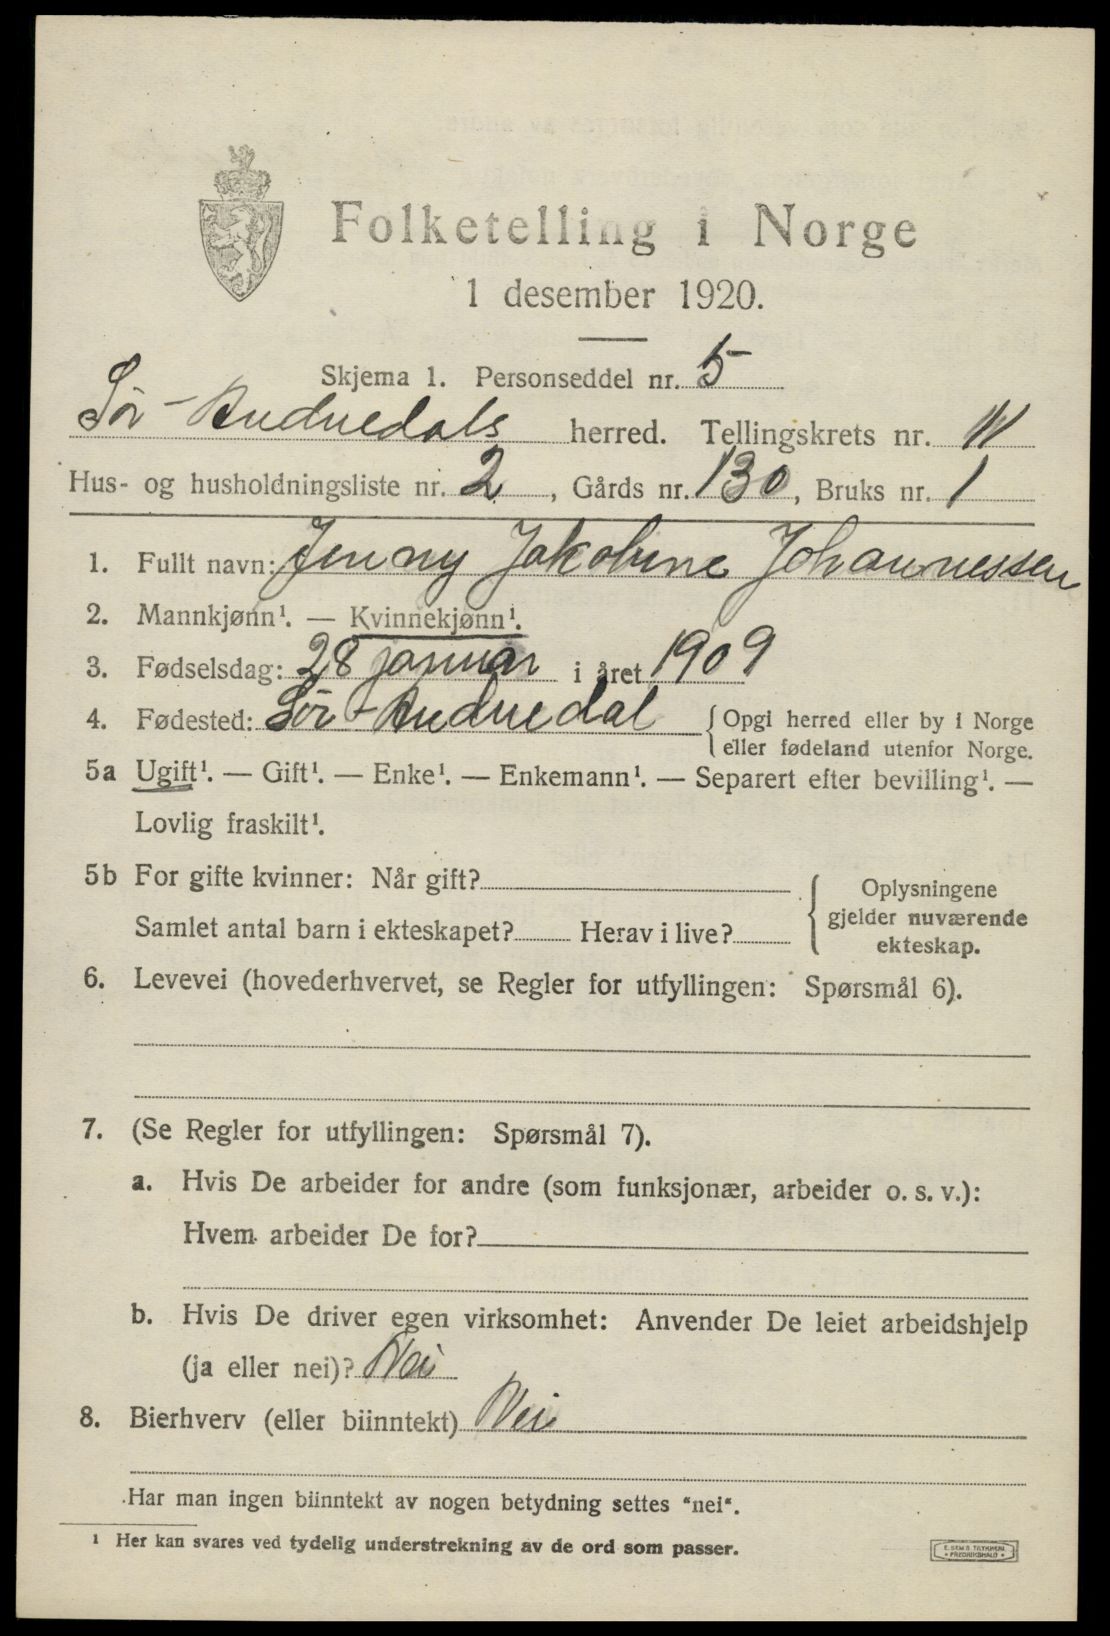 Folketelling i Norge
1 desember 1920.
Skjema 1. Personseddel nr. 5
Sör-Audnedals herred. Tellingskrets nr. 11
Hus- og husholdningsliste nr. 2, Gårds nr. 130, Bruks nr. 1
1. Fullt navn: Jenny Jakobine Johannessen
2. Mannkjønn¹. — Kvinnekjønn¹.
3. Fødselsdag: 28 januar i året 1909
4. Fødested: Sör-Audnedal {Opgi herred eller by i Norge
eller fødeland utenfor Norge.
5a Ugift¹. — Gift¹. — Enke¹. — Enkemann¹. — Separert efter bevilling¹. —
Lovlig fraskilt¹.
5b For gifte kvinner: Når gift? { Oplysningene
gjelder nuværende
Samlet antal barn i ekteskapet? Herav i live?
ekteskap.
6. Levevei (hovederhvervet, se Regler for utfyllingen: Spørsmål 6).
7. (Se Regler for utfyllingen: Spørsmål 7).
a. Hvis De arbeider for andre (som funksjonær, arbeider o. s. v.):
Hvem arbeider De for?
b. Hvis De driver egen virksomhet: Anvender De leiet arbeidshjelp
(ja eller nei)? Nei
8. Bierhverv (eller biinntekt) Nei
Har man ingen biinntekt av nogen betydning settes "nei".
¹ Her kan svares ved tydelig understrekning av de ord som passer.
E. SEM'S TRYKKERI
FREDRIKSHALD